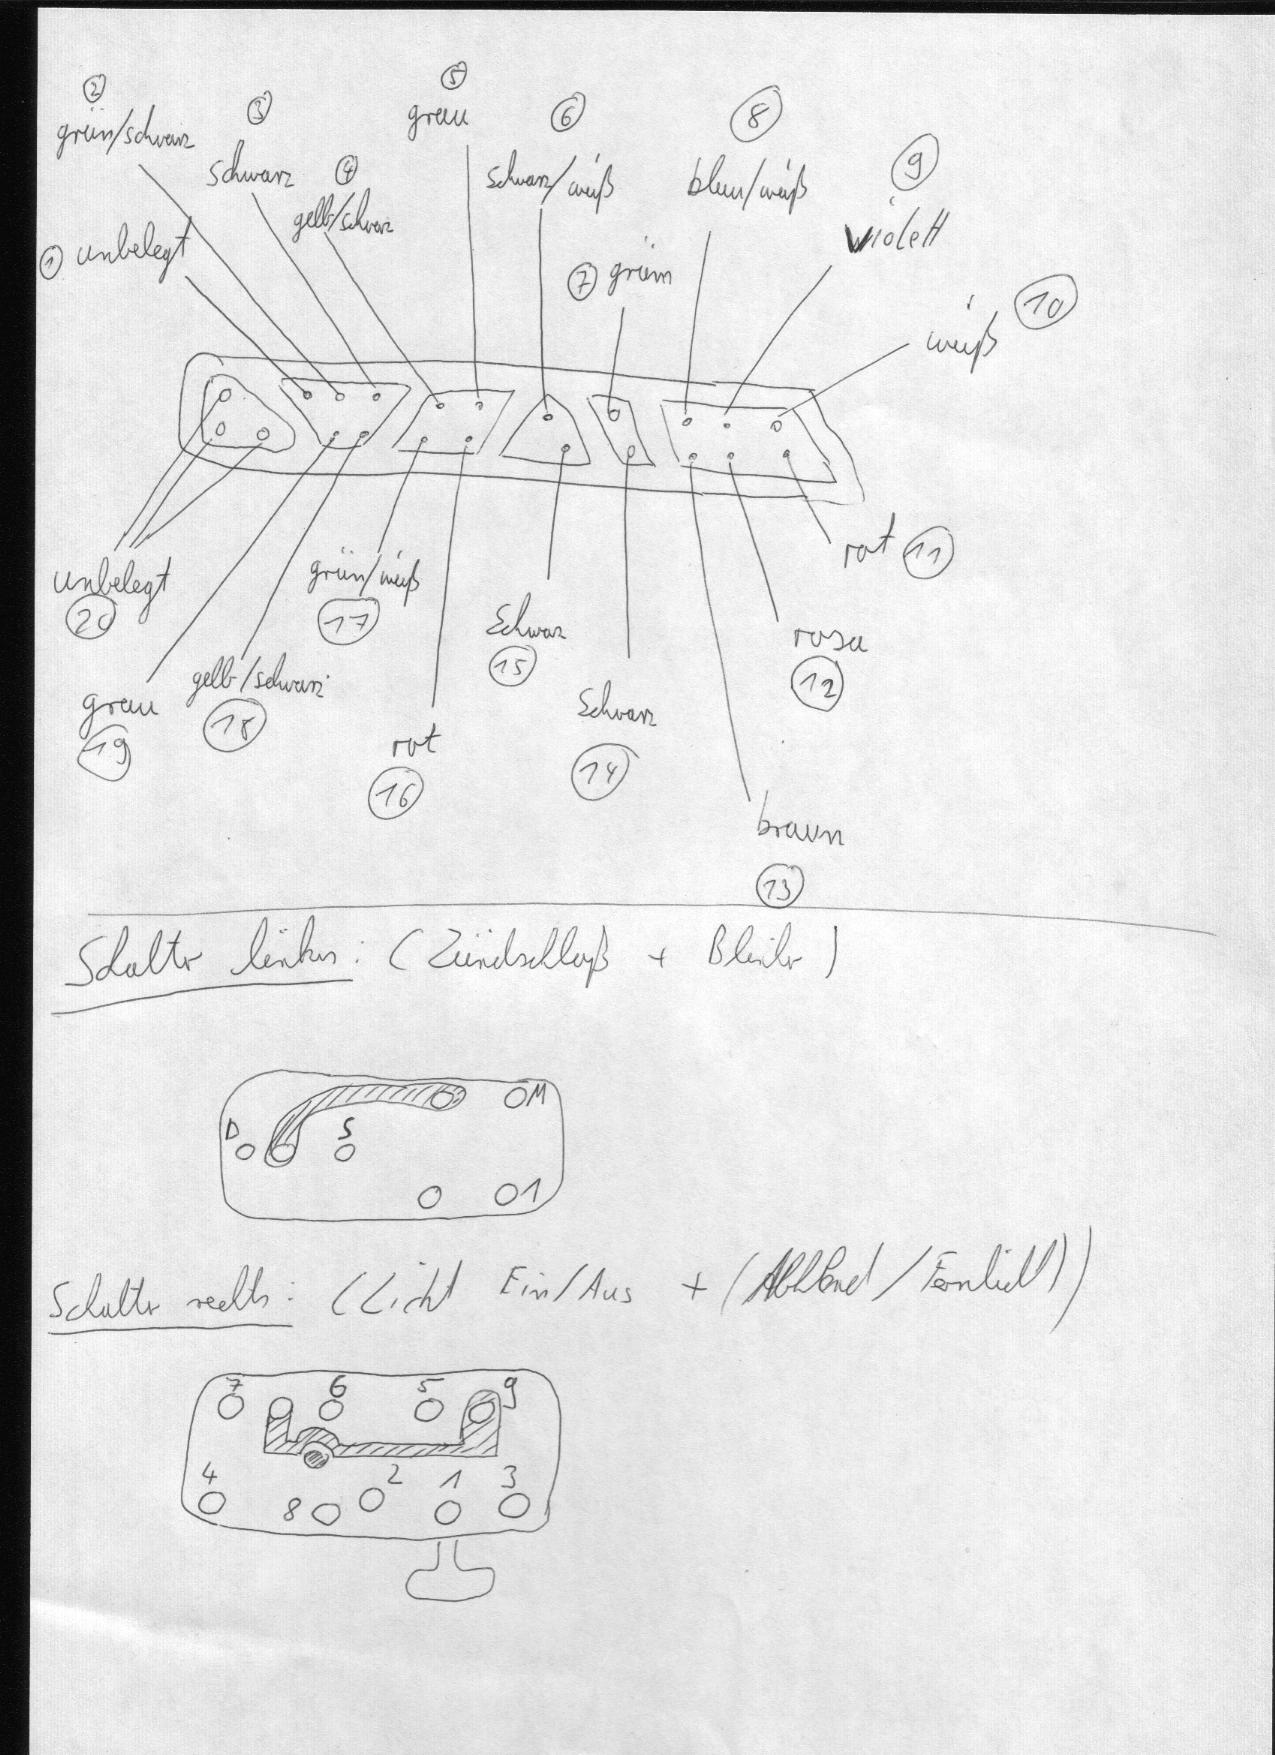 ②
grün/schwarz
③
schwarz
④
gelb/schwarz
⑤
grau
⑥
schwarz/weiß
⑧
blau/weiß
⑨
violett
① unbelegt
⑦ grün
⑩
weiß
rot ⑪
unbelegt
⑳
grün/weiß
⑰
Schwarz
⑮
rosa
⑫
grau
⑲
gelb/schwarz
⑱
rot
⑯
Schwarz
⑭
braun
⑬
Schalter links: (Zündschloß + Blinker)
M
D S
1
Schalter rechts: (Licht Ein/Aus + (Abblend/Fernlicht))
7 6 5 9
4 8 2 1 3